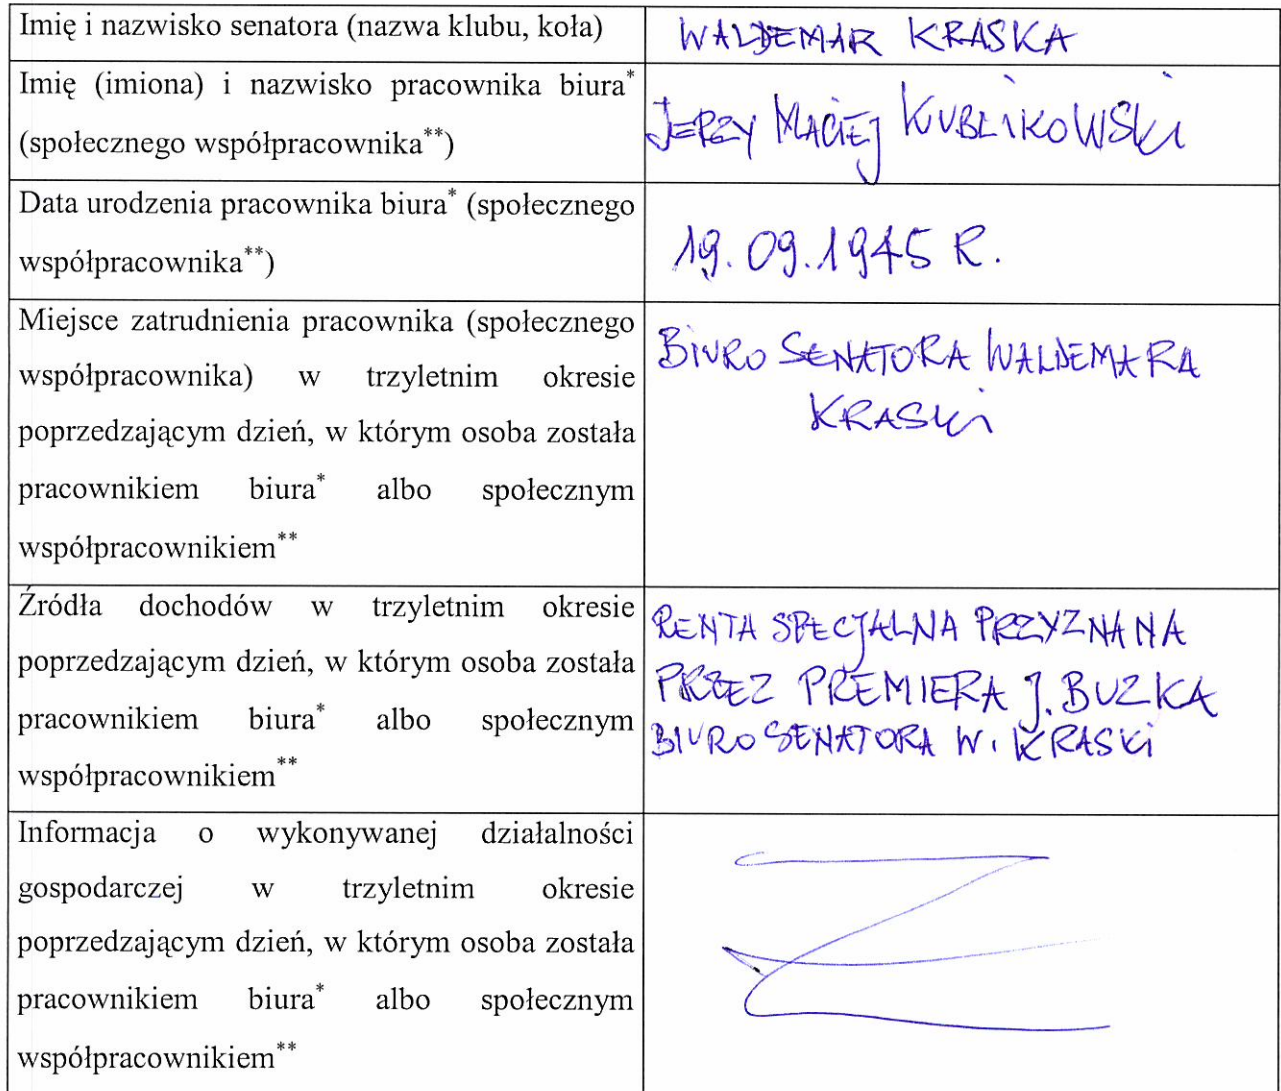 Imię i nazwisko senatora (nazwa klubu, koła)
WALDEMAR KRASKA
Imię (imiona) i nazwisko pracownika biura*
(społecznego współpracownika**)
JERZY MACIEJ KUBLIKOWSKI
Data urodzenia pracownika biura* (społecznego
współpracownika**)
19.09.1945 R.
Miejsce zatrudnienia pracownika (społecznego
współpracownika) w trzyletnim okresie
poprzedzającym dzień, w którym osoba została
pracownikiem biura* albo społecznym
współpracownikiem**
BIURO SENATORA WALDEMARA
KRASKI
Źródła dochodów w trzyletnim okresie
poprzedzającym dzień, w którym osoba została
pracownikiem biura* albo społecznym
współpracownikiem**
RENTA SPECJALNA PRZYZNANA
PRZEZ PREMIERA J. BUZKA
BIURO SENATORA W. KRASKI
Informacja o wykonywanej działalności
gospodarczej w trzyletnim okresie
poprzedzającym dzień, w którym osoba została
pracownikiem biura* albo społecznym
współpracownikiem**